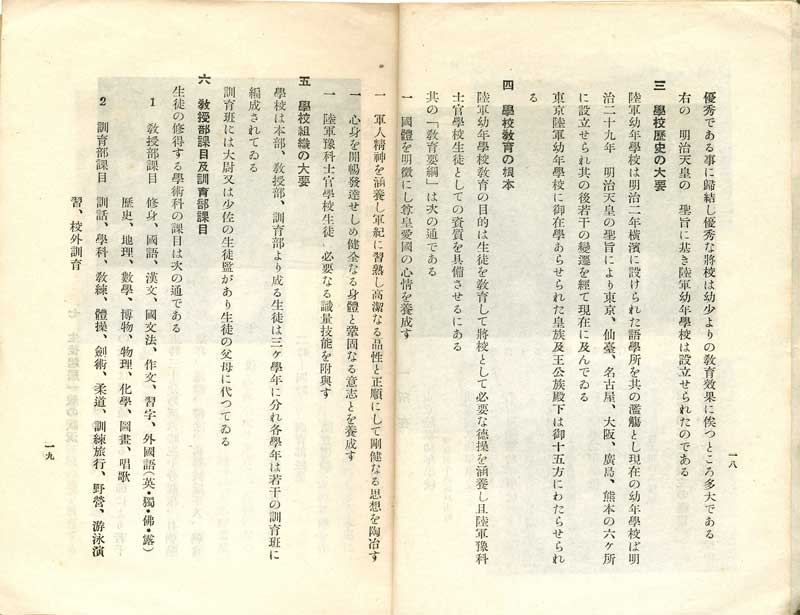 優秀である事に歸結し優秀な將校は幼少よりの敎育效果に俟つところ多大である
右の　明治天皇の　聖旨に基き陸軍幼年學校は設立せられたのである
三　學校歷史の大要
陸軍幼年學校は明治二年橫濱に設けられた語學所を其の濫觴とし現在の幼年學校は明
治二十九年　明治天皇の聖旨により東京、仙臺、名古屋、大阪、廣島、熊本の六ケ所
に設立せられ其の後若干の變遷を經て現在に及んでゐる
東京陸軍幼年學校に御在學あらせられた皇族及王公族殿下は御十五方にわたらせられ
る
四　學校敎育の根本
陸軍幼年學校敎育の目的は生徒を敎育して將校として必要な德操を涵養し且陸軍豫科
士官學校生徒としての資質を具備させるにある
其の「敎育要綱」は次の通である
一　國體を明徵にし尊皇愛國の心情を養成す
一八
一　軍人精神を涵養し軍紀に習熟し高潔なる品性と正順にして剛健なる思想を陶冶す
一　心身を開暢發達せしめ健全なる身體と鞏固なる意志とを養成す
一　陸軍豫科士官學校生徒に必要なる識量技能を附與す
五　學校組織の大要
學校は本部、敎授部、訓育部より成る生徒は三ケ學年に分れ各學年は若干の訓育班に
編成されてゐる
訓育班には大尉又は少佐の生徒監があり生徒の父母に代つてゐる
六　敎授部課目及訓育部課目
生徒の修得する學術科の課目は次の通である
1　敎授部課目　修身、國語、漢文、國文法、作文、習字、外國語（英・獨・佛・露）
歷史、地理、數學、博物、物理、化學、圖畫、唱歌
2　訓育部課目　訓話、學科、敎練、體操、劍術、柔道、訓練旅行、野營、游泳演
習、校外訓育
一九